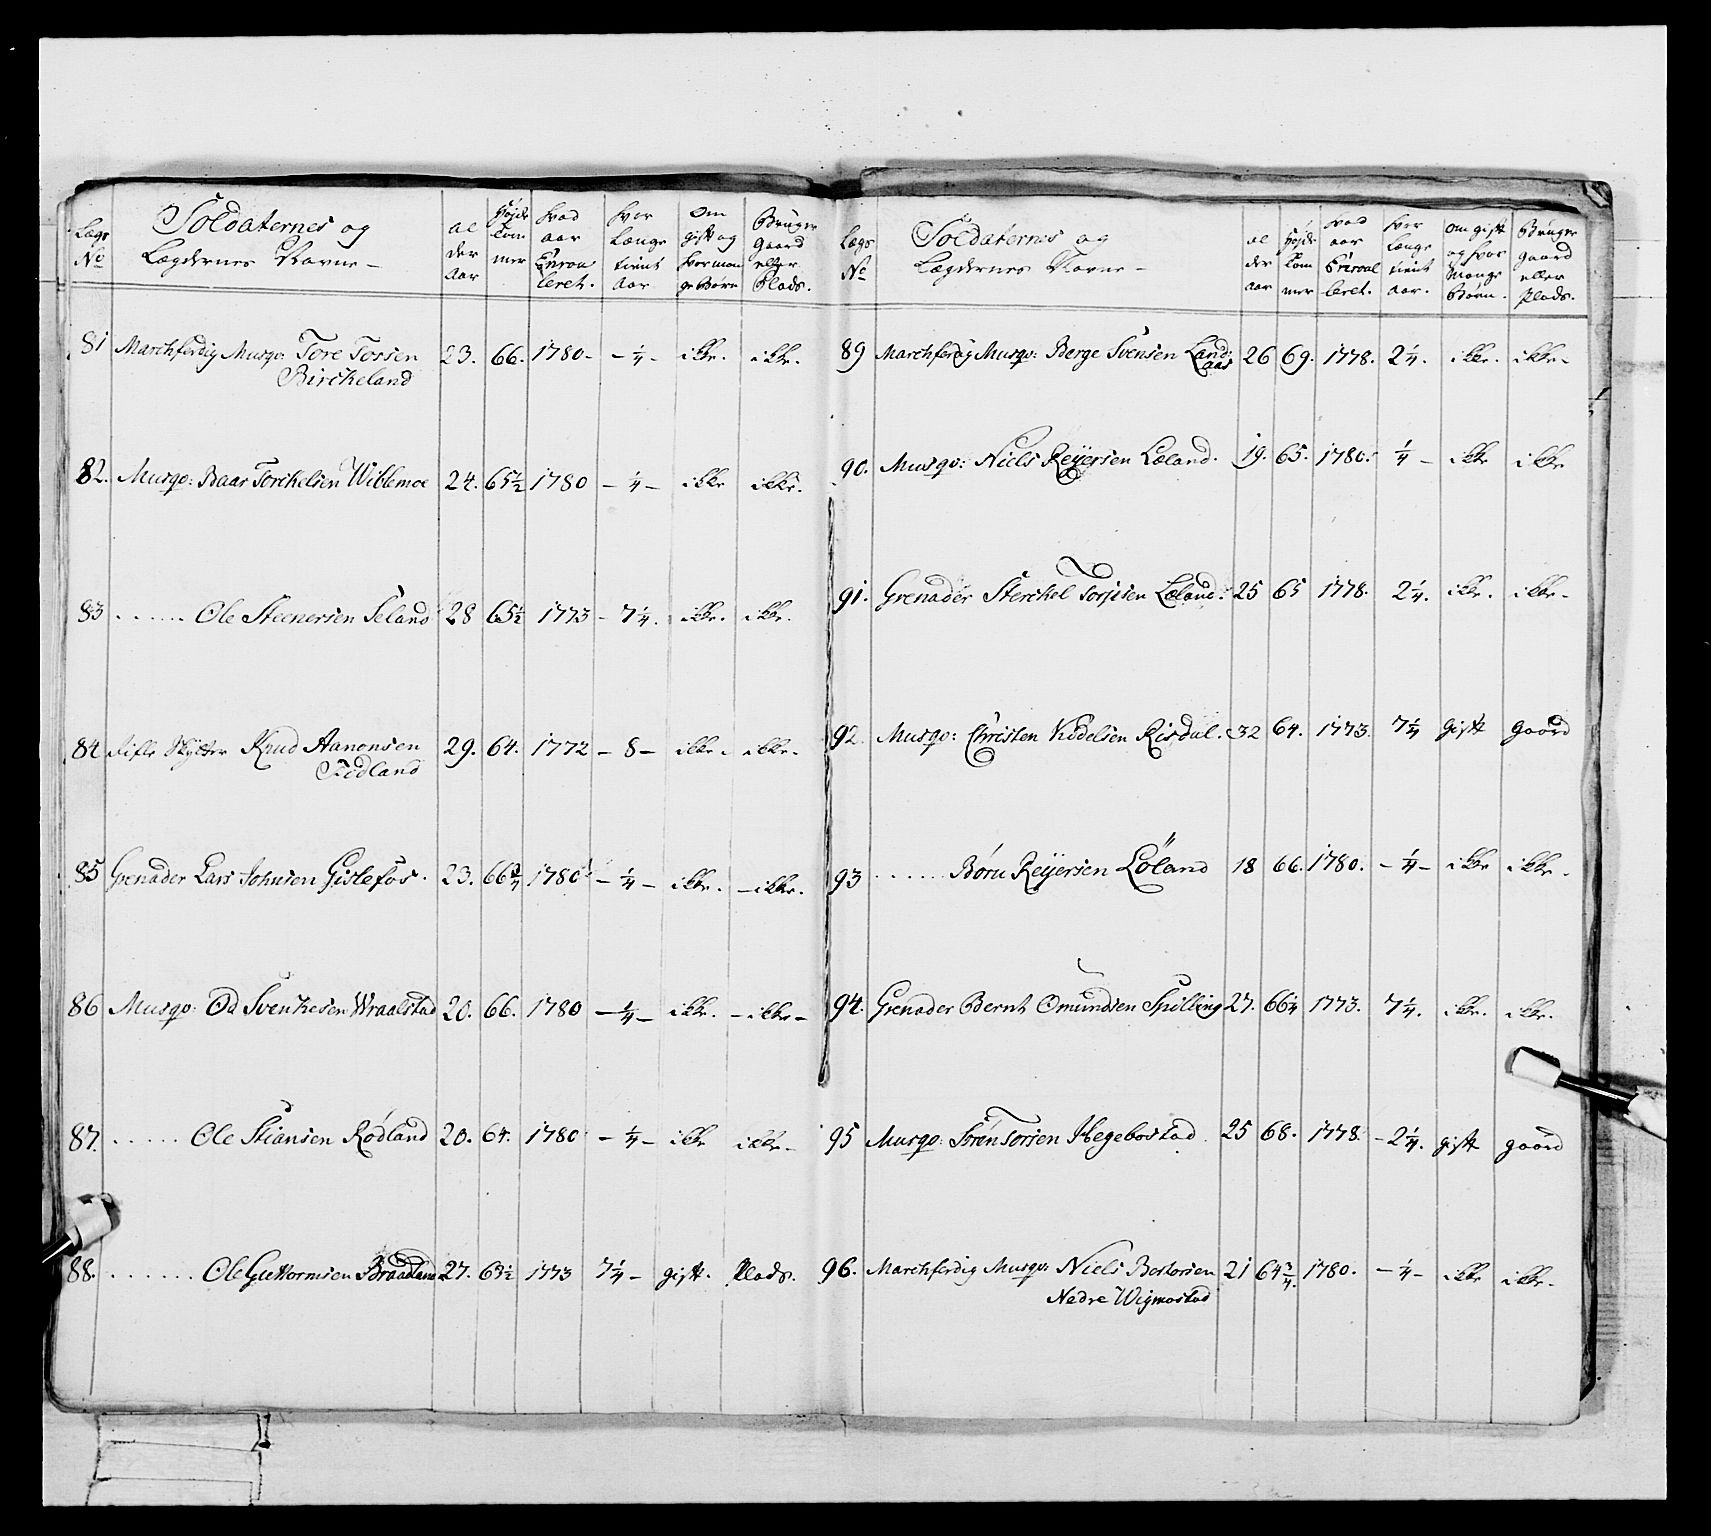 Lægs No
Soldaternes og Lægdernes Navne –
al der Aar
Højde Tom mer
hvad aar Enroul leret.
hvor længe tient Aar
Om gift og hvor man ge Børn
Bruger Gaard eller Plads.
81 Marchferdig Musqv: Tore Torsen 23. 66. 1780 – – ¼ – ikke. ikke.
Birckeland
82. Musqv: Baar Torchelsen Wiblemoe 24. 65½ 1780 – ¼ – ikke ikke.
83 . . . . . . Ole Steenersen Seland 28 65½ 1773 – 7¼. ikke. ikke.
84 Rifle Skytter Knud Aanonsen 29. 64. 1772 – 8 – ikke – ikke –
Fodland
85 Grenader Lars Johnsen Gislefos. 23. 66¾ 1780 – ¼ – ikke. – ikke.
86 Musqv: Od Svenkesen Wraalstad 20. 66. 1780 – ¼ – ikke. – ikke –
87. . . . . . Ole Stiansen Rødland 20. 64. 1780 – ¼ – ikke ikke –
88. . . . . . . Ole Guttormsen Braadland 27. 63½ 1773 7¼ – gift. Plads.
Lægs No
Soldaternes og Lægdernes Navne –
al der aar
Højde Tom mer
hvad aar Enroul leret.
hver længe tient aar.
om gift og hvor Mange Børn.
Bruger gaard eller plads.
89 Marchferdig Musqv: Berge Svensen Land: 26 69. 1778. 2¼. ikke. ikke –
aas
90. Musqv: Niels Reijersen Leland. 19. 65. 1780. ¼ – ikke ikke
91. Grenader Sterchel Torjusen Leland. 25 65 1778. 2¼. ikke. ikke –
92. Musqv: Christen Kidelsen Risdal. 32 64. 1773. 7¼ gift gaard
93 . . . . . . Børu Reijersen Løland 18 66. 1780. – ¼ – ikke ikke.
94. Grenader Bernt Omundsen Spilling 27. 66¼ 1773. 7¼. ikke. ikke.
95 Musqv: Søren Torsen Hegebostad. 25 68. 1778. – 2¼. gift gaard
96. Marchferdig Musqv: Niels Bertorsen 21 64¾. 1780. – ¼ – ikke ikke.
Nedre Wigmostad